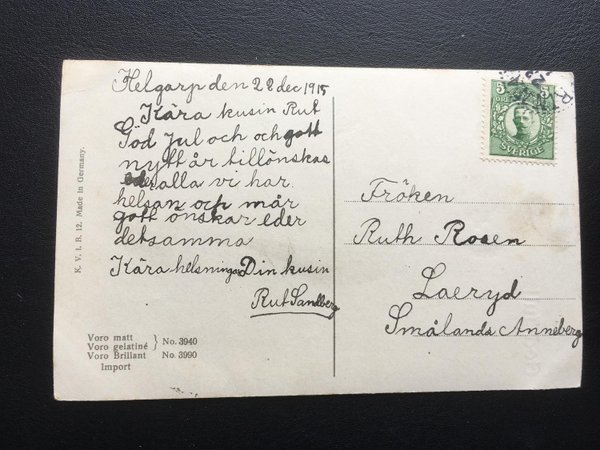 Helgarp den 22 dec 1915
Kära kusin Rut
God Jul och och gott
nytt år tillönskas
eder alla vi har
helsan och mår
gott önskar eder
detsamma
Kära helsningar Din kusin
Rut Sandberg
Fröken
Ruth Rosen
Laeryd
Smålands Anneberg
5 5
SVERIGE
K. V. i. B. 12. Made in Germany.
Voro matt
Voro gelatiné } No. 3940
Voro Brillant } No. 3990
Import